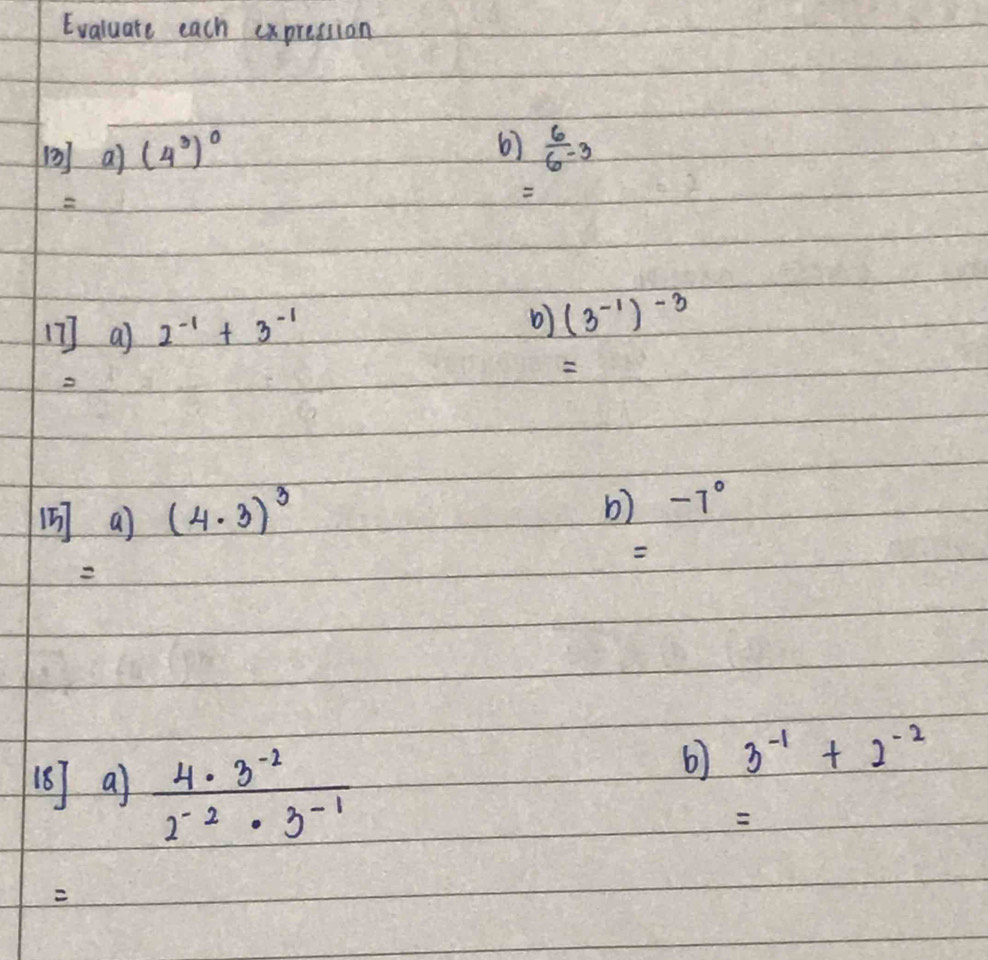 Evaluate each expression
13] a) (4³)⁰ b) 6/6⁻³
= =
17] a) 2⁻¹ + 3⁻¹ b) (3⁻¹)⁻³
= =
15] a) (4 · 3)³ b) -7⁰
= =
18] a) 4 · 3⁻² / 2⁻² · 3⁻¹ b) 3⁻¹ + 2⁻²
= =